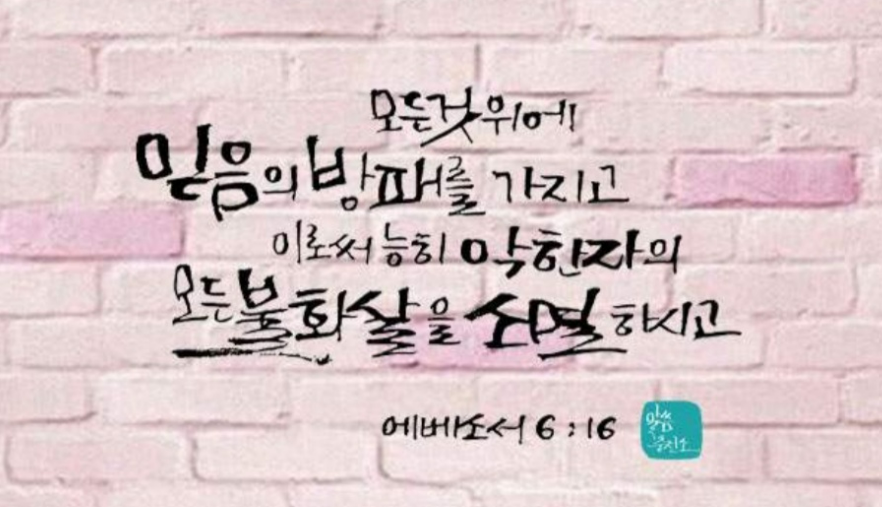 모든것 위에
믿음의 방패를 가지고
이로써 능히 악한자의
모든 불화살을 소멸하시고
에베소서 6:16
말씀
충전소